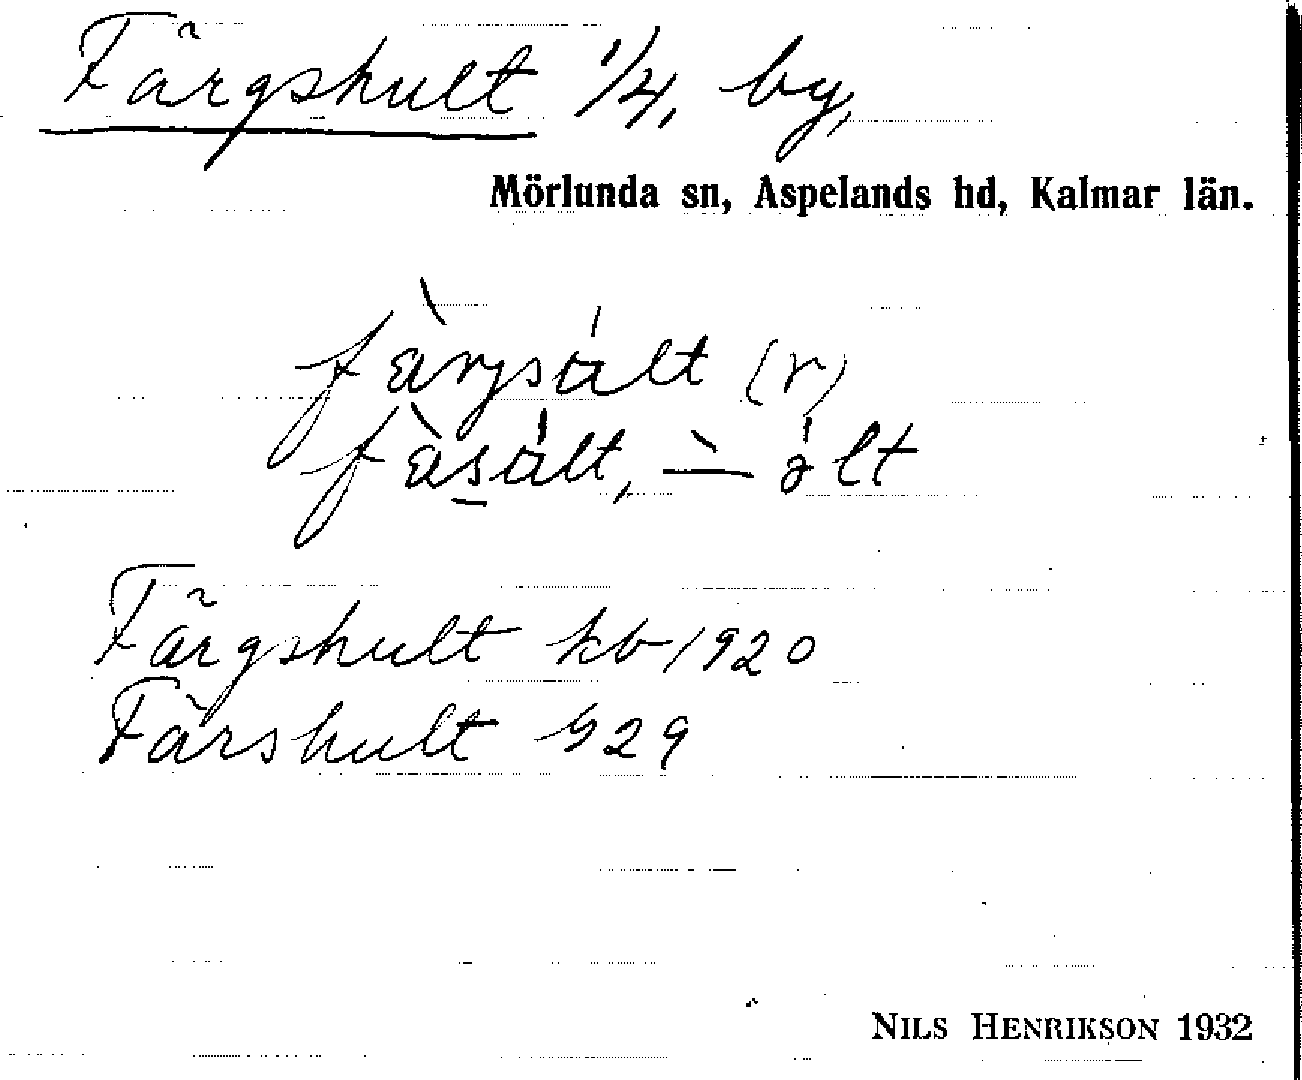 Färgshult 1/4, by,
Mörlunda sn, Aspelands hd, Kalmar län.
fàrjsált (r)
fàsált, –̀ ólt
Färgshult kb 1920
Färshult G 29
NILS HENRIKSON 1932